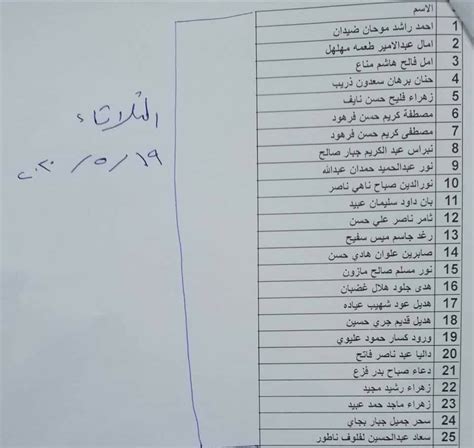 الاسم
1 احمد راشد موحان ضيدان
2 امال عبدالامير طعمه مهلهل
3 امل فالح هاشم مناع
4 حنان برهان سعدون ذريب
5 زهراء فليح حسن نايف
6 مصطفة كريم حسن فرهود
7 مصطفى كريم حسن فرهود
8 نبراس عبد الكريم جبار صالح
9 نور عبدالحميد حمدان عبدالله
10 نورالدين صباح ناهي ناصر
11 بان داود سليمان عبيد
12 ثامر ناصر علي حسن
13 رغد جاسم ميس سفيح
14 صابرين علوان هادي حسن
15 نور مسلم صالح مازون
16 هدى جلود هلال غضبان
17 هديل عود شهيب عياده
18 هديل قديم جري حسين
19 ورود كسار حمود عليوي
20 داليا عبد ناصر فالح
21 دعاء صباح بدر فزع
22 زهراء رشيد مجيد
23 زهراء ماجد حمد عبيد
24 سحر جميل جبار بجاي
25 سعاد عبدالحسين لفلوف ناطور
الثلاثاء
١٩ / ٥ / ٢٠٢٠